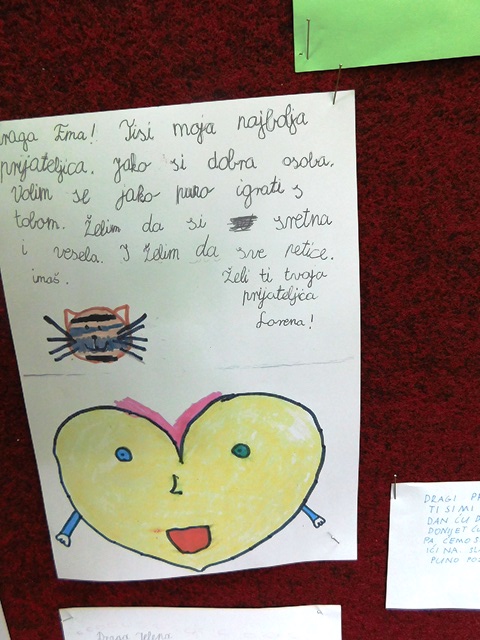 raga Ema! Tisi moja najbolja
prijateljica. Jako si dobra osoba.
Volim se jako puno igrati s
tobom. Želim da si sretna
i vesela. I želim da sve petice.
imaš. Želi ti tvoja
prijateljica
Lorena!
DRAGI PR
TI SI MI
DAN ĆU D
DONIJET
PA ĆEMO S
IĆI NA
PUNO PO
Draga Jelena